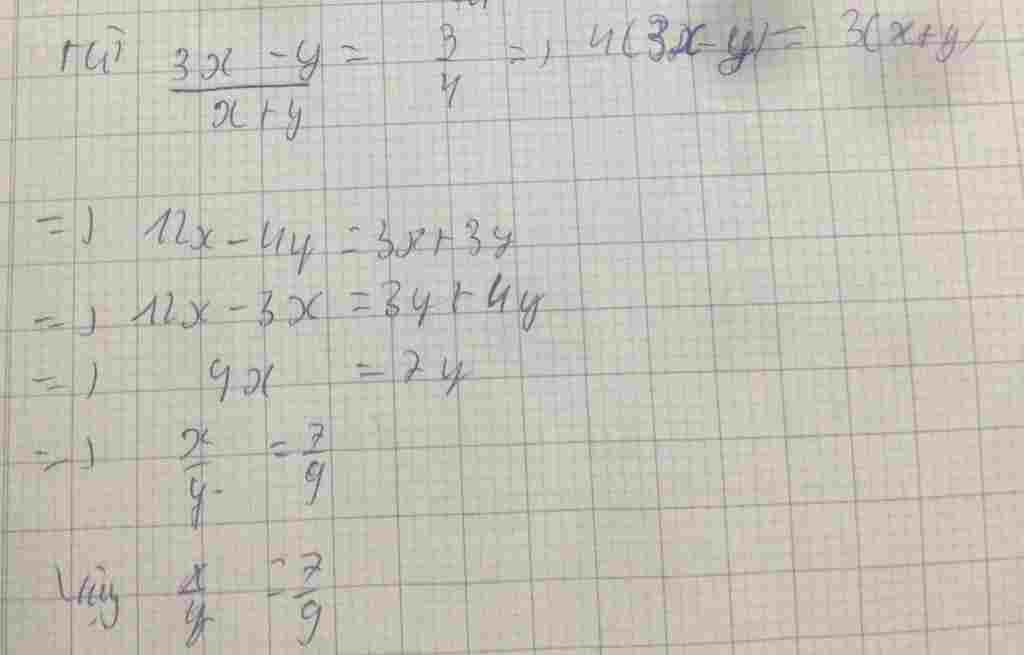 Từ 3x - y / x + y = 3 / 4 => 4(3x - y) = 3(x + y)
=> 12x - 4y = 3x + 3y
=> 12x - 3x = 3y + 4y
=> 9x = 7y
=> x / y = 7 / 9
Vậy x / y = 7 / 9